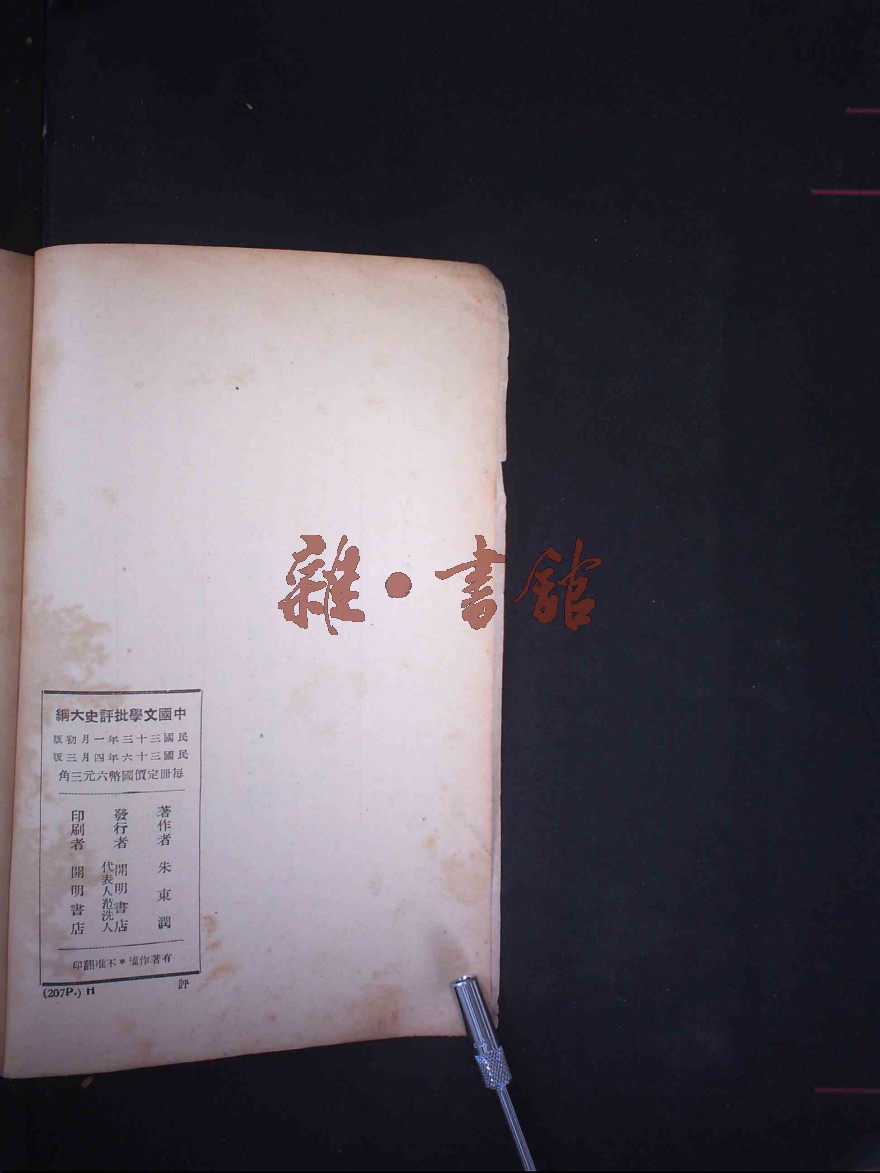 中國文學批評史大綱
民國三十三年一月初版
民國三十六年四月三版
每冊定價國幣六元三角
著作者 朱東潤
發行者 開明書店
代表人范洗人
印刷者 開明書店
有著作權*不准翻印
(207P.) H 評
雜·書館